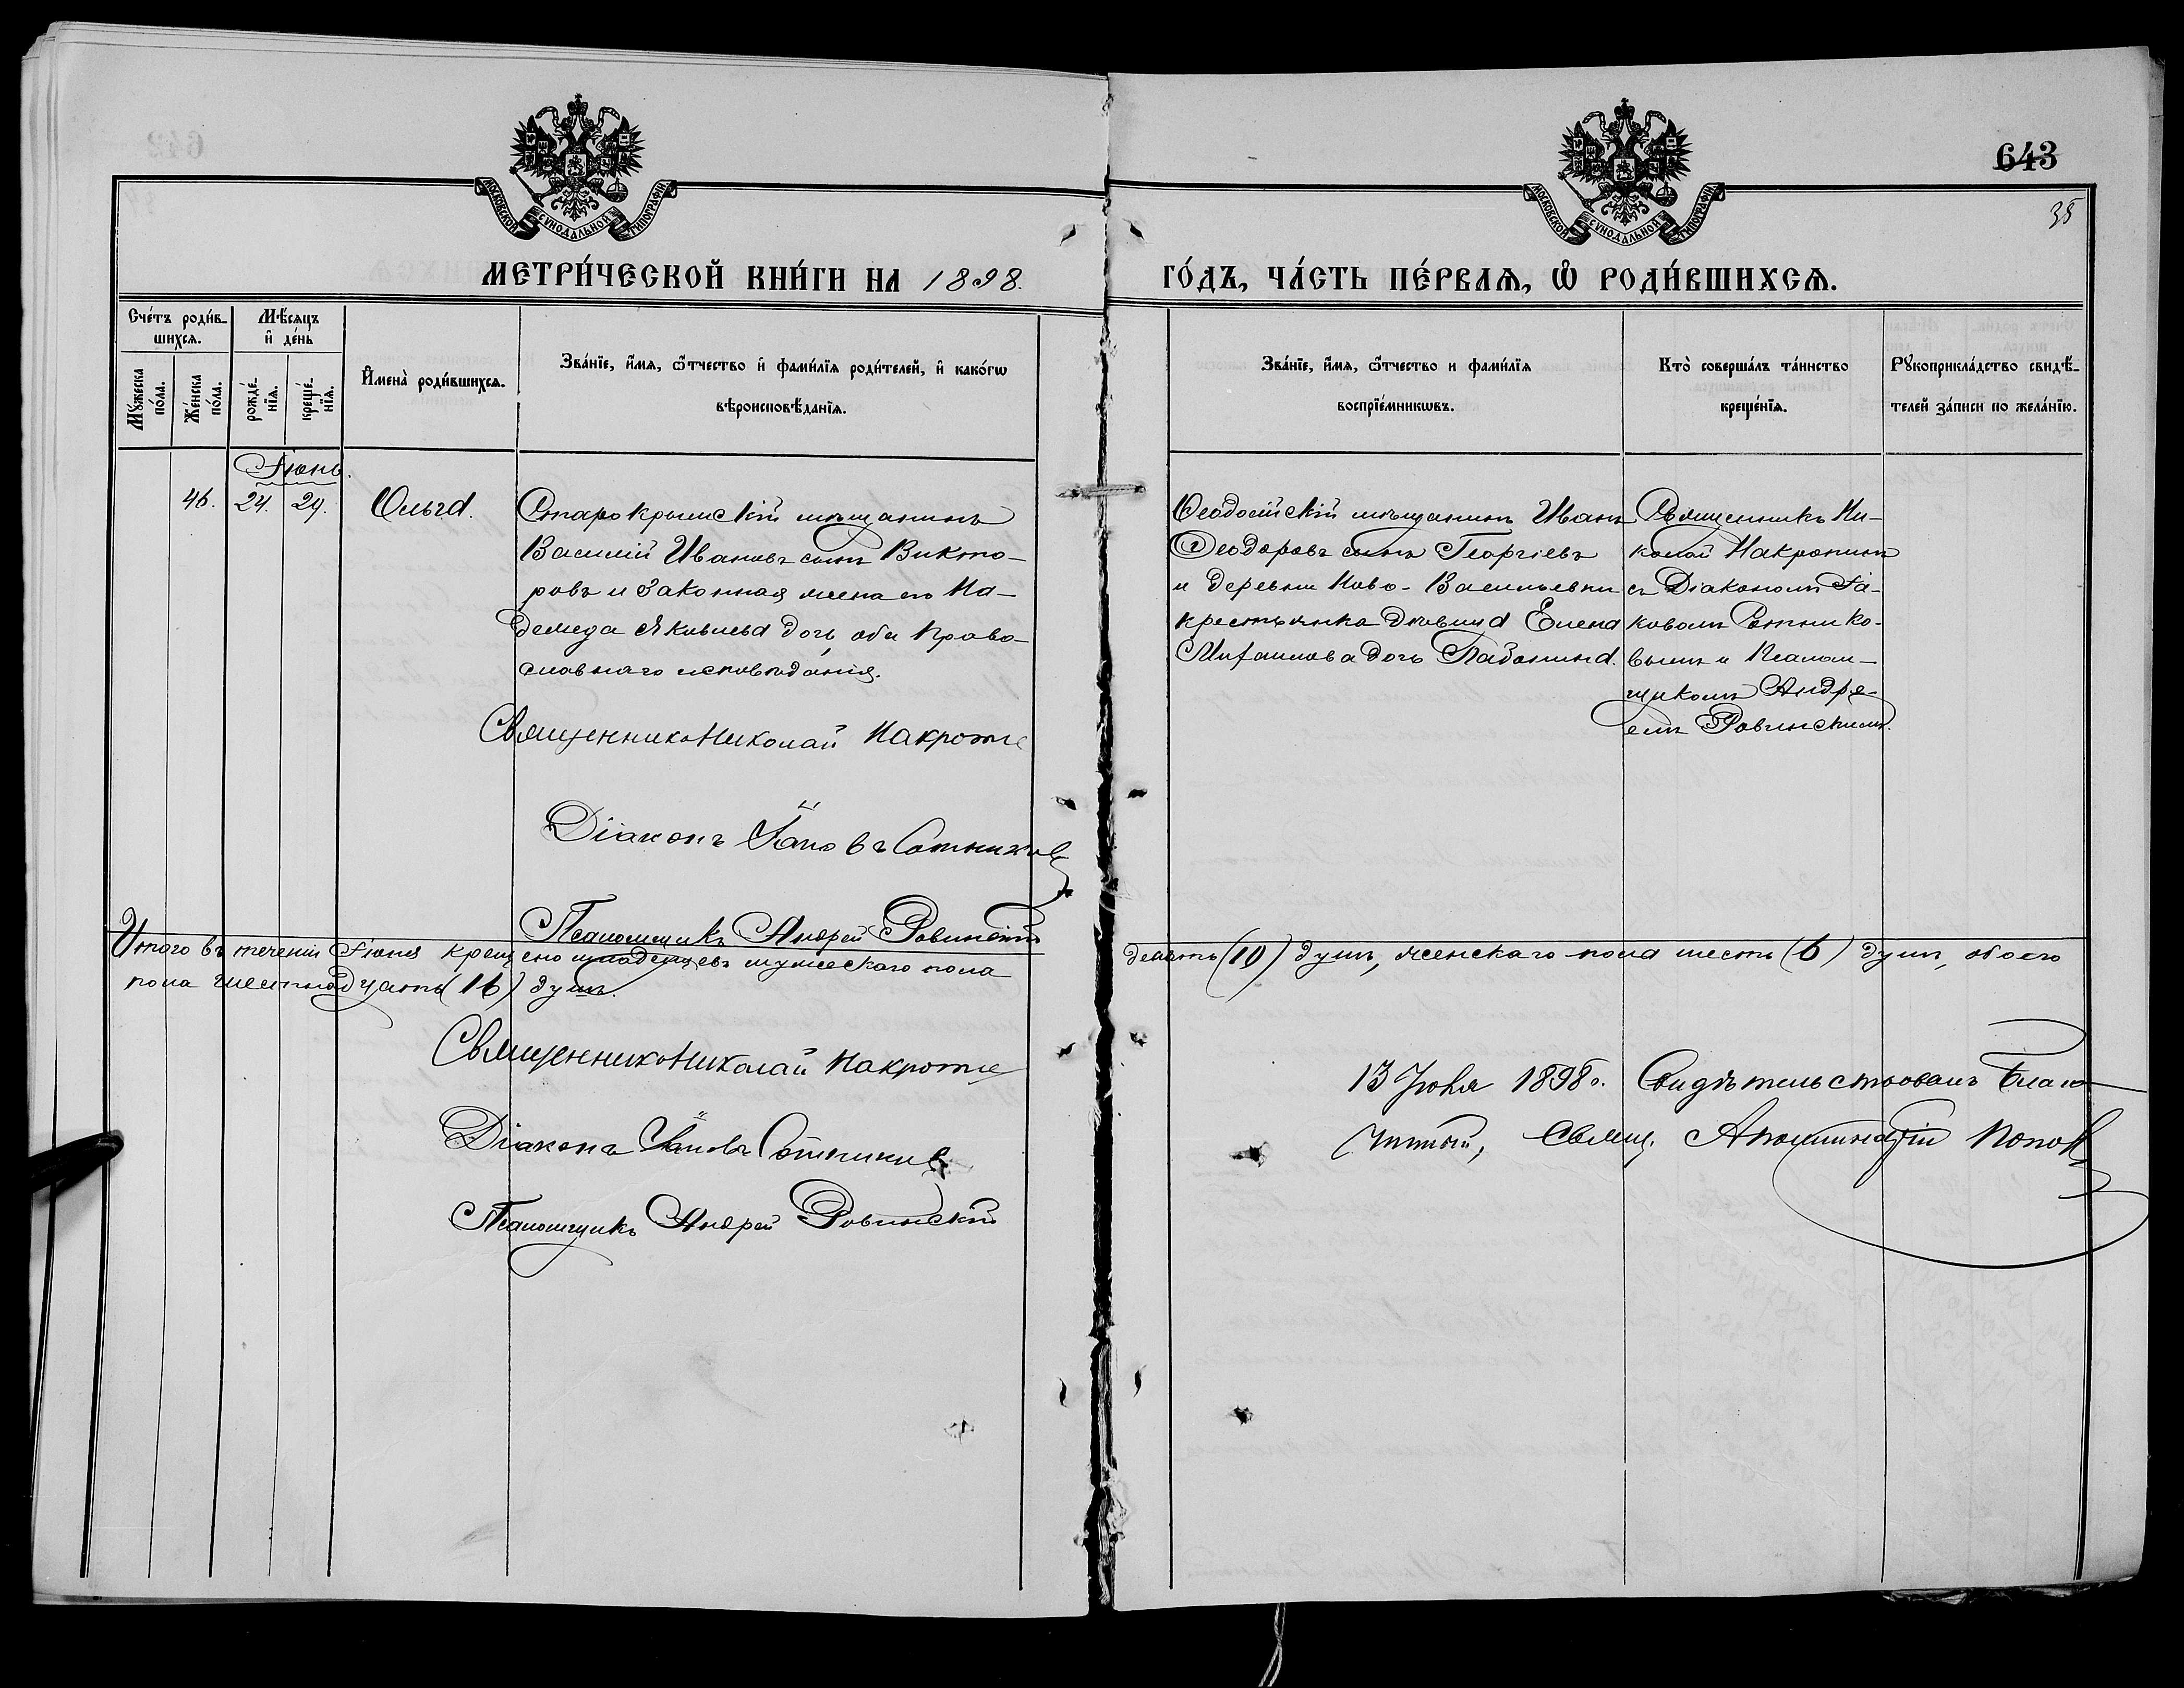 643
35
МОСКОВСКОЙ СѴНОДАЛЬНОЙ ТИПОГРАФІИ
МОСКОВСКОЙ СѴНОДАЛЬНОЙ ТИПОГРАФІИ
МЕТРИ́ЧЕСКОЙ КНИ́ГИ НА 1898.
ГО́ДЪ, ЧА́СТЬ ПЕ́РВАѦ, Ѡ РОДИ́ВШИХСѦ.
Сче́тъ роди́в-
шихся.
Мꙋ́жеска по́ла.
Же́нска по́ла.
Мѣ́сяцъ
и҆ де́нь
рожде́-
нїя.
креще́-
нїя.
И҆мена̀ роди́вшихся.
Зва́нїе, и҆́мя, ѻ҆́тчество и҆ фами́лїя роди́телей, и҆ како́гѡ
вѣроисповѣ́данїя.
Зва́нїе, и҆́мя, ѻ҆́тчество и фами́лїя
воспрїе́мникѡвъ.
Кто̀ соверша́лъ та́инство
креще́нїя.
Рꙋкоприкла́дство свидѣ́-
телей за́писи по жела́нїю.
Іюнь.
46. 24. 29. Ольга.
Старокрымскій мѣщанинъ
Василій Ивановъ сынъ Викто-
ровъ и законная жена его На-
дежда Яковлева дочь, оба Право-
славнаго исповѣданія.
Ѳеодосійскій мѣщанинъ Иванъ
Ѳеодоровъ сынъ Георгіевъ
и деревни Ново-Васильевки
крестьянка дѣвица Елена
Михаилова дочь
Священникъ Ни-
колай Макротинъ
съ Діакономъ Іа-
ковомъ Сотнико-
вымъ и Псалом-
щикомъ Андре-
емъ Ровинскимъ.
Священникъ Николай
Діаконъ Іаковъ Сотниковъ
Псаломщикъ Андрей Ровинскій
Итого въ теченіи Іюня крещено младенцевъ мужескаго пола
десять (10) душъ, женскаго пола шесть (6) душъ, обоего
пола шестнадцать (16) душъ.
Священникъ Николай
Діаконъ Іаковъ Сотниковъ
Псаломщикъ Андрей Ровинскій
13 Іюля 1898 г. Свидѣтельствовалъ Благо-
чинный, Свящ. Аполлинарій Поповъ